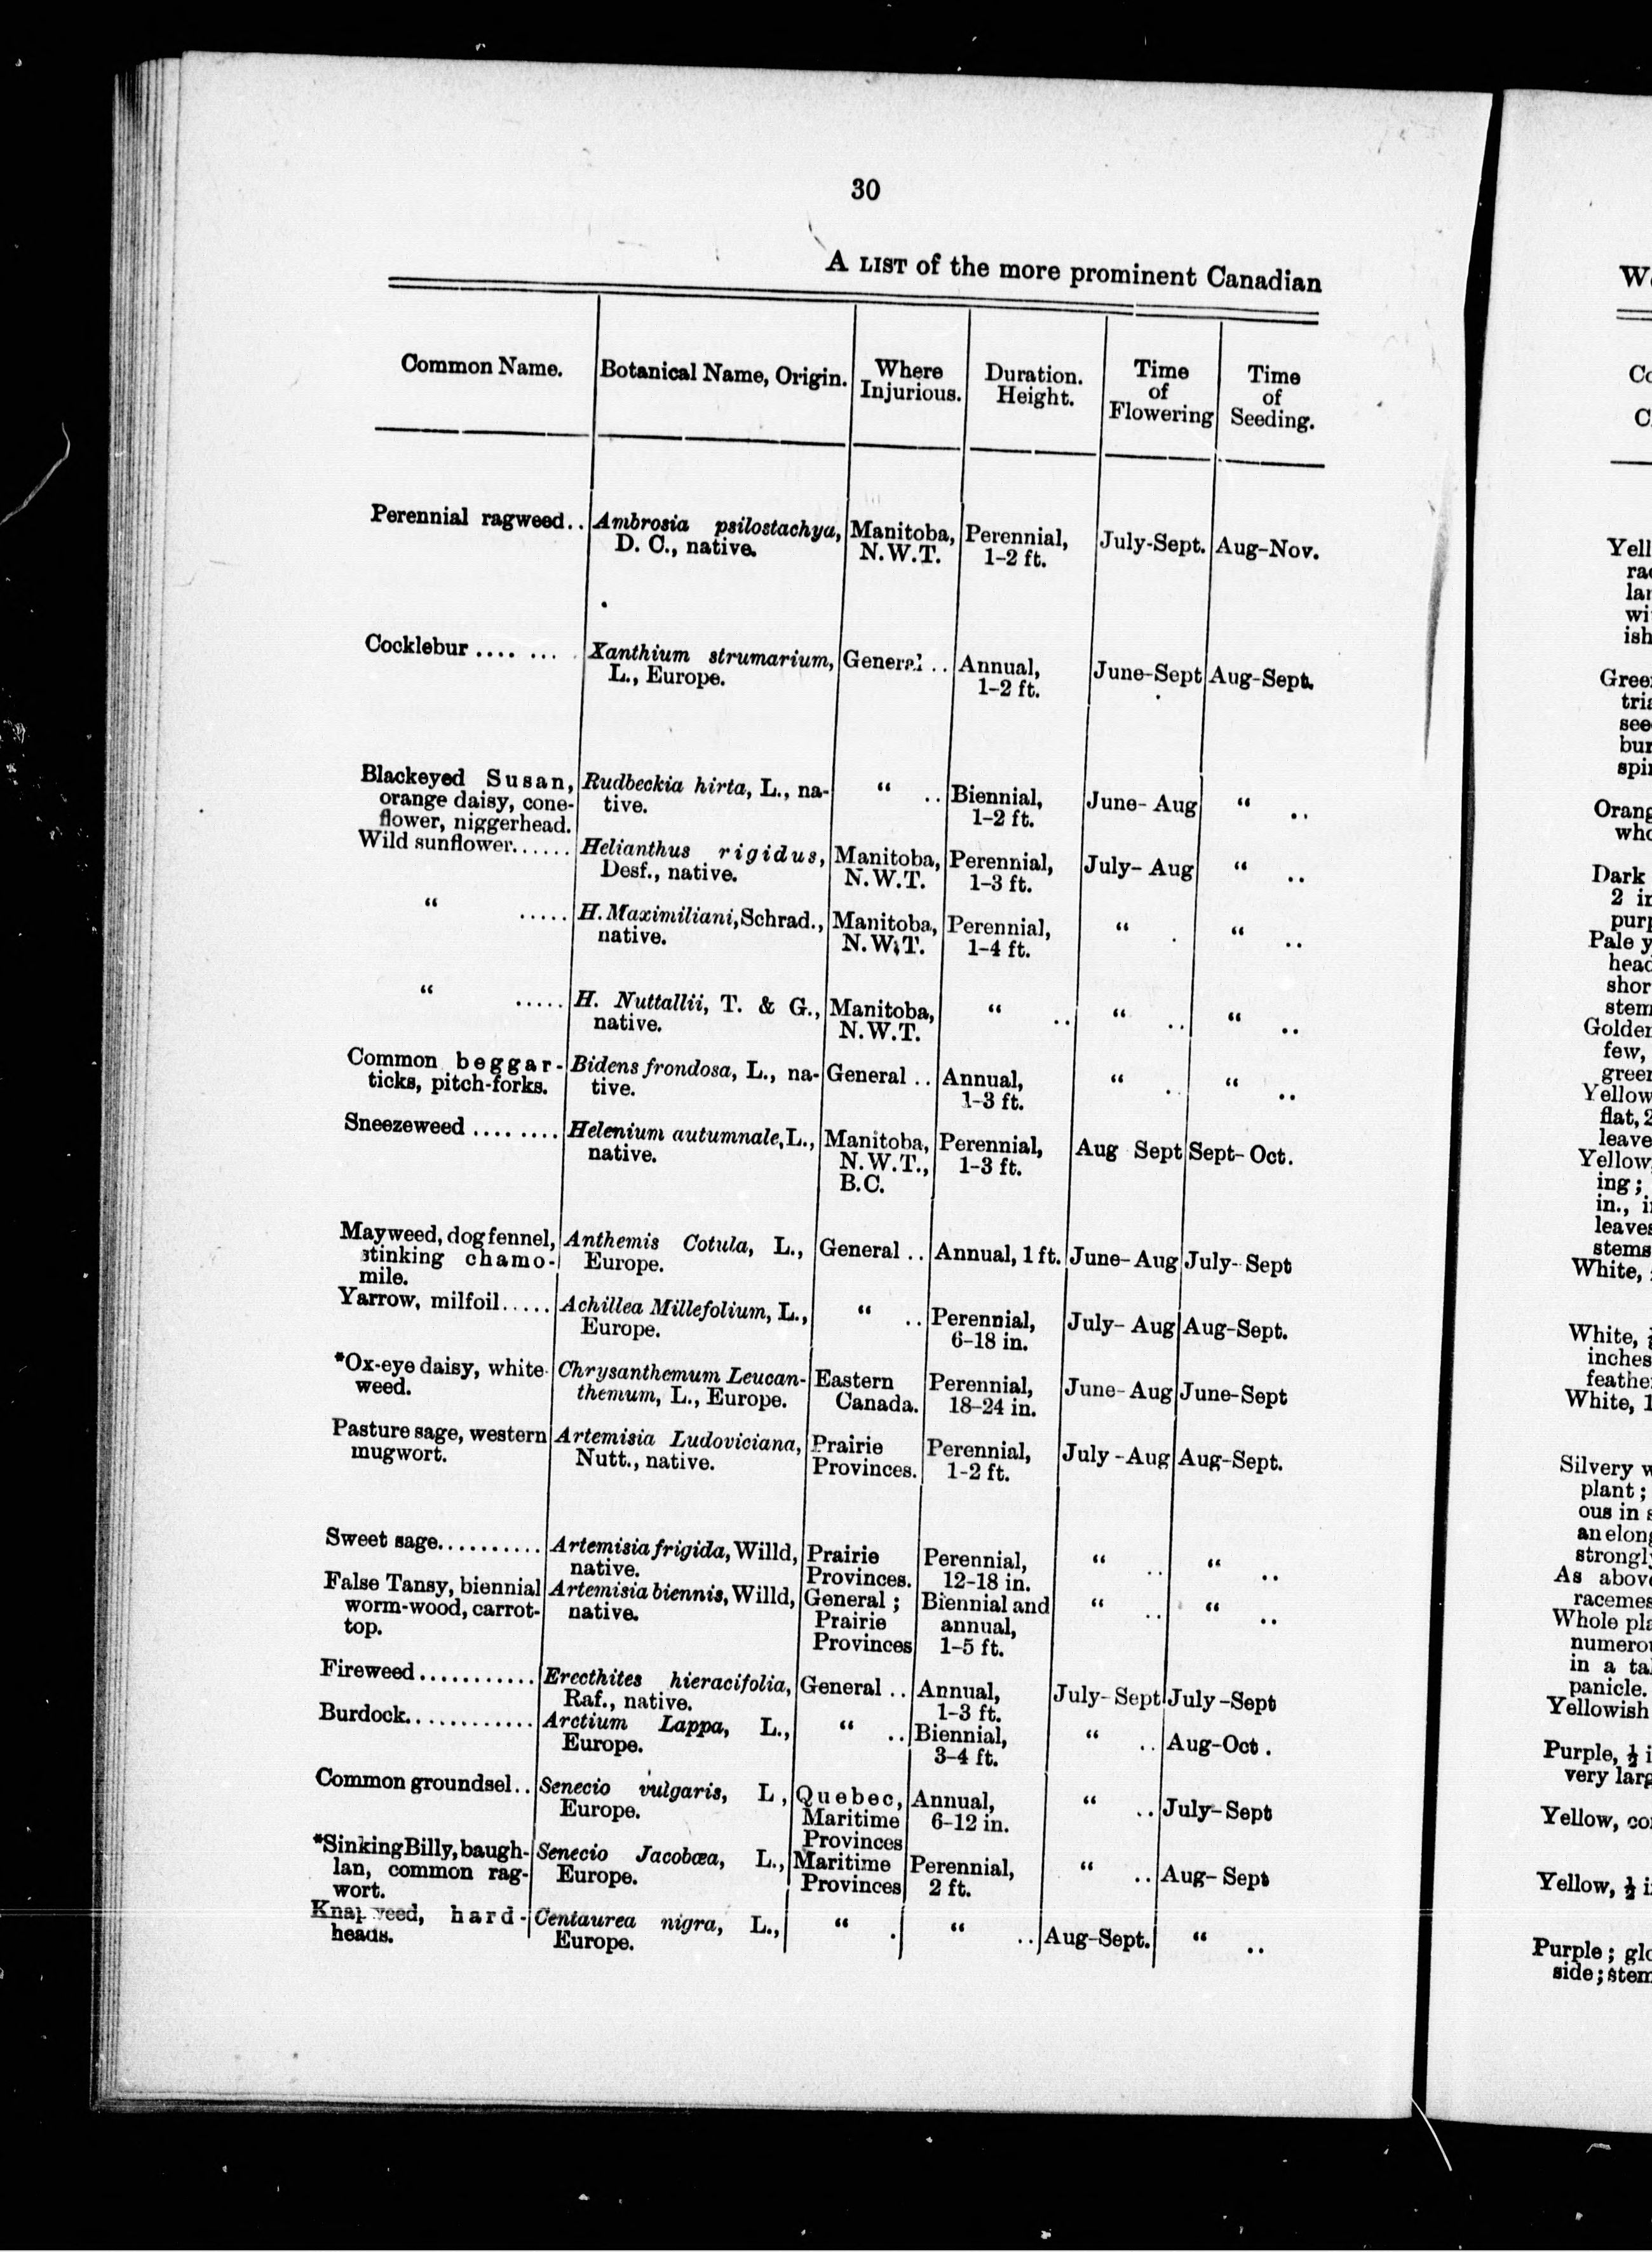 30
A LIST of the more prominent Canadian
Common Name. Botanical Name, Origin. Where Injurious. Duration. Height. Time of Flowering Time of Seeding.
Perennial ragweed.. Ambrosia psilostachya, Manitoba, Perennial, July-Sept. Aug-Nov.
D. C., native. N.W.T. 1-2 ft.
Cocklebur .... ... . Xanthium strumarium, General .. Annual, June-Sept Aug-Sept.
L., Europe. 1-2 ft.
Blackeyed Susan, Rudbeckia hirta, L., na- “ .. Biennial, June- Aug “ ..
orange daisy, cone- tive. 1-2 ft.
flower, niggerhead.
Wild sunflower...... Helianthus rigidus, Manitoba, Perennial, July- Aug “ ..
Desf., native. N.W.T. 1-3 ft.
“ ..... H. Maximiliani, Schrad., Manitoba, Perennial, “ . “ ..
native. N.W.T. 1-4 ft.
“ ..... H. Nuttallii, T. & G., Manitoba, “ .. “ .. “ ..
native. N.W.T.
Common beggar- Bidens frondosa, L., na- General .. Annual, “ .. “ ..
ticks, pitch-forks. tive. 1-3 ft.
Sneezeweed ........ Helenium autumnale, L., Manitoba, Perennial, Aug Sept Sept- Oct.
native. N.W.T., 1-3 ft.
B.C.
Mayweed, dog fennel, Anthemis Cotula, L., General .. Annual, 1 ft. June- Aug July- Sept
stinking chamo- Europe.
mile.
Yarrow, milfoil..... Achillea Millefolium, L., “ .. Perennial, July- Aug Aug-Sept.
Europe. 6-18 in.
*Ox-eye daisy, white- Chrysanthemum Leucan- Eastern Perennial, June- Aug June-Sept
weed. themum, L., Europe. Canada. 18-24 in.
Pasture sage, western Artemisia Ludoviciana, Prairie Perennial, July -Aug Aug-Sept.
mugwort. Nutt., native. Provinces. 1-2 ft.
Sweet sage.......... Artemisia frigida, Willd, Prairie Perennial, “ .. “ ..
native. Provinces. 12-18 in.
False Tansy, biennial Artemisia biennis, Willd, General ; Biennial and “ .. “ ..
worm-wood, carrot- native. Prairie annual,
top. Provinces 1-5 ft.
Fireweed........... Erecthites hieracifolia, General .. Annual, July- Sept July -Sept
Raf., native. 1-3 ft.
Burdock............ Arctium Lappa, L., “ .. Biennial, “ .. Aug-Oct .
Europe. 3-4 ft.
Common groundsel.. Senecio vulgaris, L , Quebec, Annual, “ .. July- Sept
Europe. Maritime 6-12 in.
Provinces
*Sinking Billy, baugh- Senecio Jacobæa, L., Maritime Perennial, “ .. Aug- Sept
lan, common rag- Europe. Provinces 2 ft.
wort.
Knapweed, hard- Centaurea nigra, L., “ . “ .. Aug-Sept. “ ..
heads. Europe.
Yell
Gree
tria
see
bur
spi
Orang
who
Dark
2 in
purp
Pale y
head
shor
stem
Golden
few,
green
Yellow
flat, 2
leave
Yellow
ing ;
in., i
leaves
stems
White,
White,
inches
feathe
White, 1
Silvery w
plant ;
ous in s
an elong
strongl
As above
racemes
Whole pla
numero
in a ta
panicle.
Yellowish
Purple, ½ i
very larg
Yellow, co
Yellow, ½ i
Purple ; glo
side ; stem